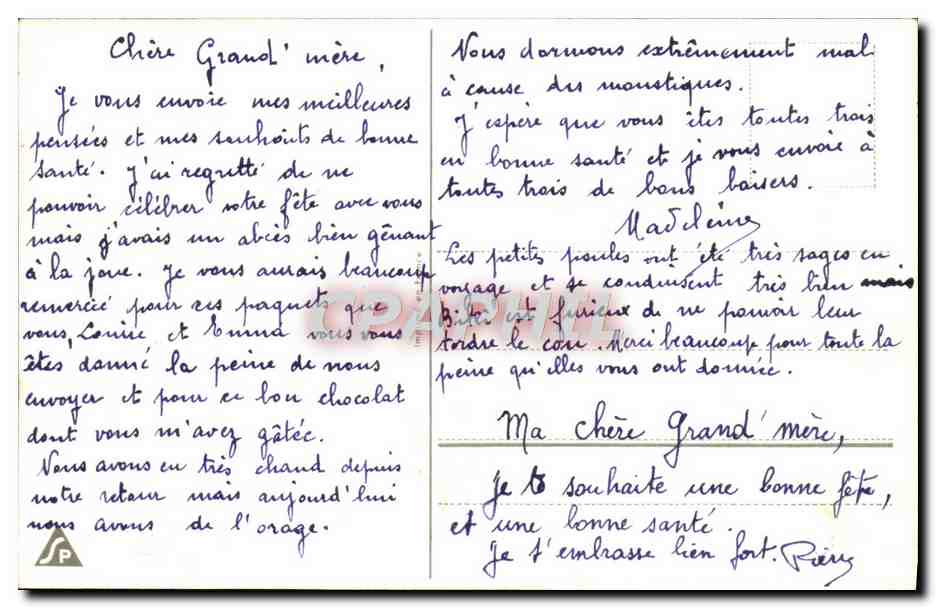 Chère Grand' mère,
Je vous envoie mes meilleures
pensées et mes souhaits de bonne
santé. J'ai regretté de ne
pouvoir célébrer votre fête avec vous
mais j'avais un abcès bien gênant
à la joue. Je vous aurais beaucoup
remercié pour ces paquets que
vous, Louise et Emma vous vous
êtes donné la peine de nous
envoyer et pour ce bon chocolat
dont vous m'avez gâtée.
Nous avons eu très chaud depuis
notre retour mais aujourd'hui
nous avons de l'orage.
SP
Vous dormons extrêmement mal
à cause des moustiques.
J'espère que vous êtes toutes trois
en bonne santé et je vous envoie à
toutes trois de bons baisers.
Madeleine
Les petites poules ont été très sages en
voyage et se conduisent très bien mais
est furieux de ne pouvoir leur
tordre le cou. Merci beaucoup pour toute la
peine qu'elles vous ont donnée.
Ma chère Grand' mère,
Je te souhaite une bonne fête,
et une bonne santé.
Je t'embrasse bien fort. Pierre
CPAPHIL